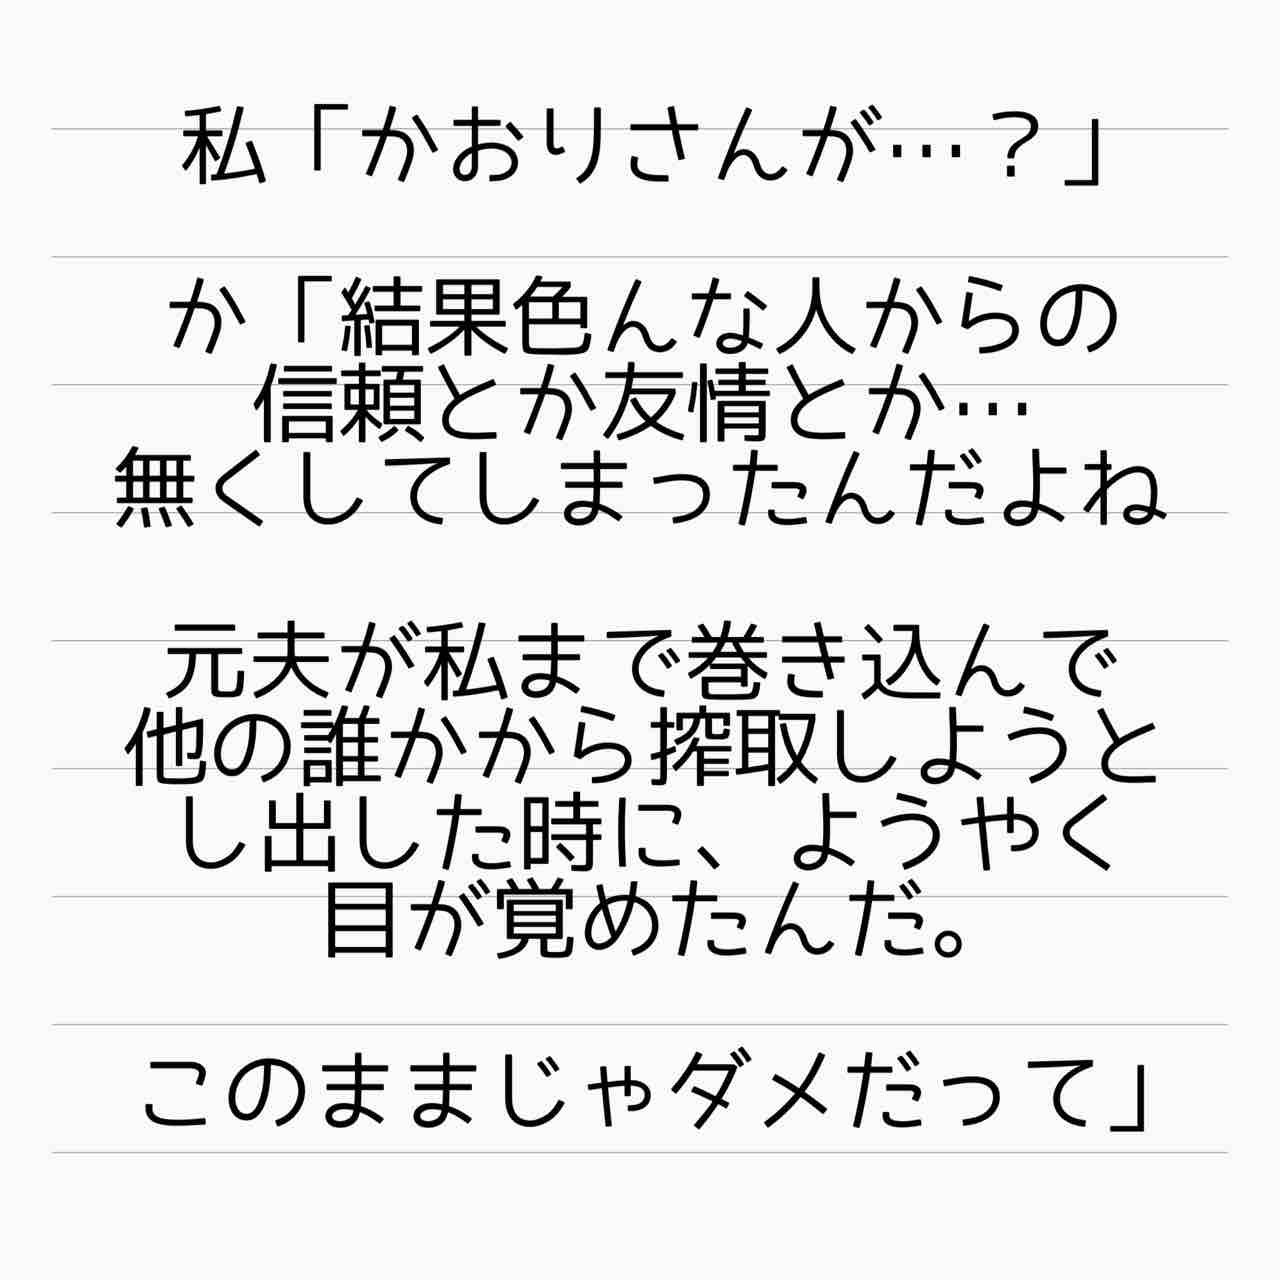 私「かおりさんが…？」
か「結果色んな人からの
信頼とか友情とか…
無くしてしまったんだよね
元夫が私まで巻き込んで
他の誰かから搾取しようと
し出した時に、ようやく
目が覚めたんだ。
このままじゃダメだって」